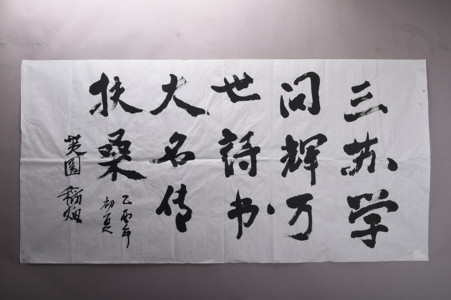 三苏学
问辉万
世詩书
大名传
扶桑
乙酉年
初夏
英国